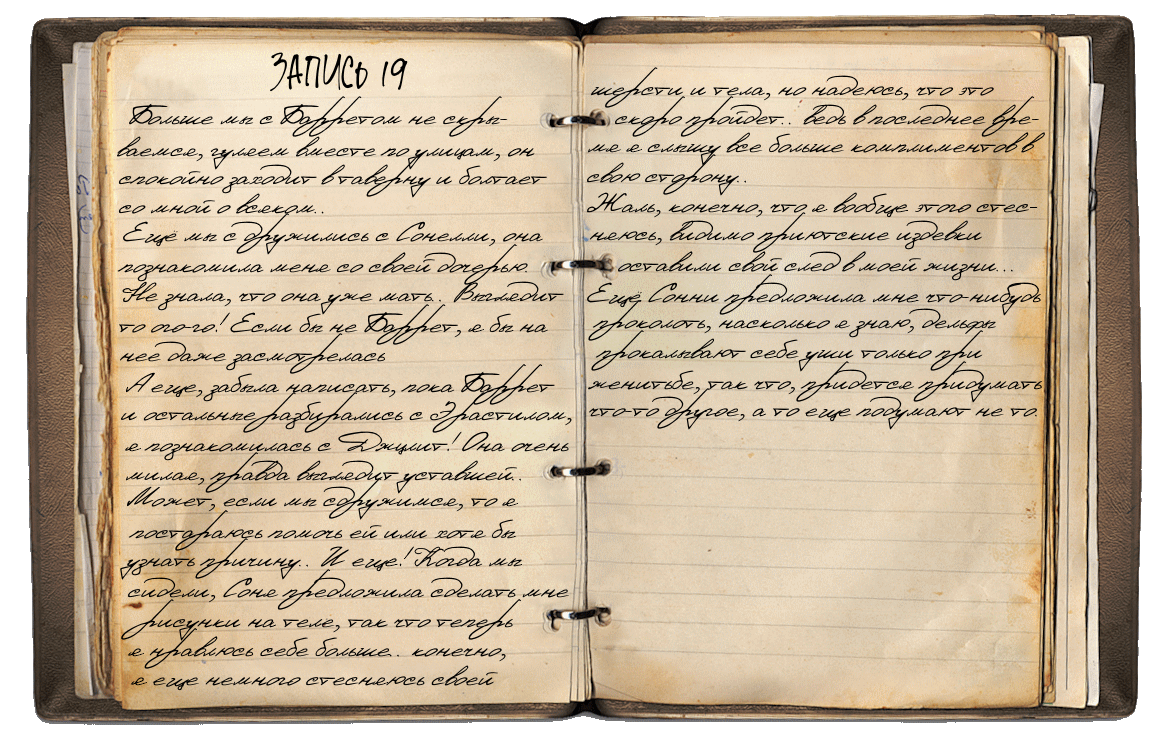 ЗАПИСЬ 19
Больше мы с Барретом не скры-
ваемся, гуляем вместе по улицам, он
спокойно заходит в таверну и болтает
со мной о всяком..
Еще мы с дружились с Сонелли, она
познакомила меня со своей дочерью.
Не знала, что она уже мать.. Выглядит
то ого-го! Если бы не Баррет, я бы на
нее даже засмотрелась
А еще, забыла написать, пока Баррет
и остальные разбирались с Эрастилом,
я познакомилась с Джулит! Она очень
милая, правда выглядит уставшей..
Может, если мы сдружимся, то я
постараюсь помочь ей или хотя бы
узнать причину.. И еще! Когда мы
сидели, Соня предложила сделать мне
рисунки на теле, так что теперь
я нравлюсь себе больше.. конечно,
я еще немного стесняюсь своей
шерсти и тела, но надеюсь, что это
скоро пройдет.. Ведь в последнее вре-
мя я слышу все больше комплиментов в
свою сторону..
Жаль, конечно, что я вообще этого стес-
няюсь, видимо приютские издевки
оставили свой след в моей жизни...
Еще Сонни предложила мне что-нибудь
проколоть, насколько я знаю, дельфы
прокалывают себе уши только при
женитьбе, так что, придется придумать
что-то другое, а то еще подумают не то.